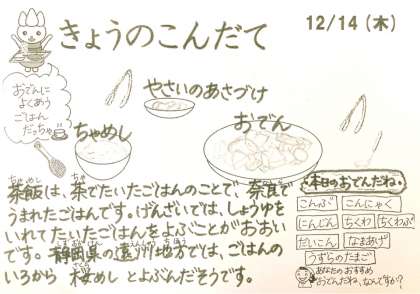 きょうのこんだて
12/14 (木)
おでんに
よくあう
ごはん
だっちゃ
やさいのあさづけ
ちゃめし
おでん
茶飯は、茶でたいたごはんのことで 奈良で
うまれたごはんです。げんざいでは、しょうゆを
いれて たいたごはんをよぶことが おおい
です。静岡県の遠州地方では、ごはんの
いろから 桜めし とよぶんだそうです。
本日のおでんだね
こんぶ こんにゃく
にんじん ちくわ ちくわぶ
だいこん なまあげ
うずらのたまご
あなたのおすすめ
おでんだね、なんですか?